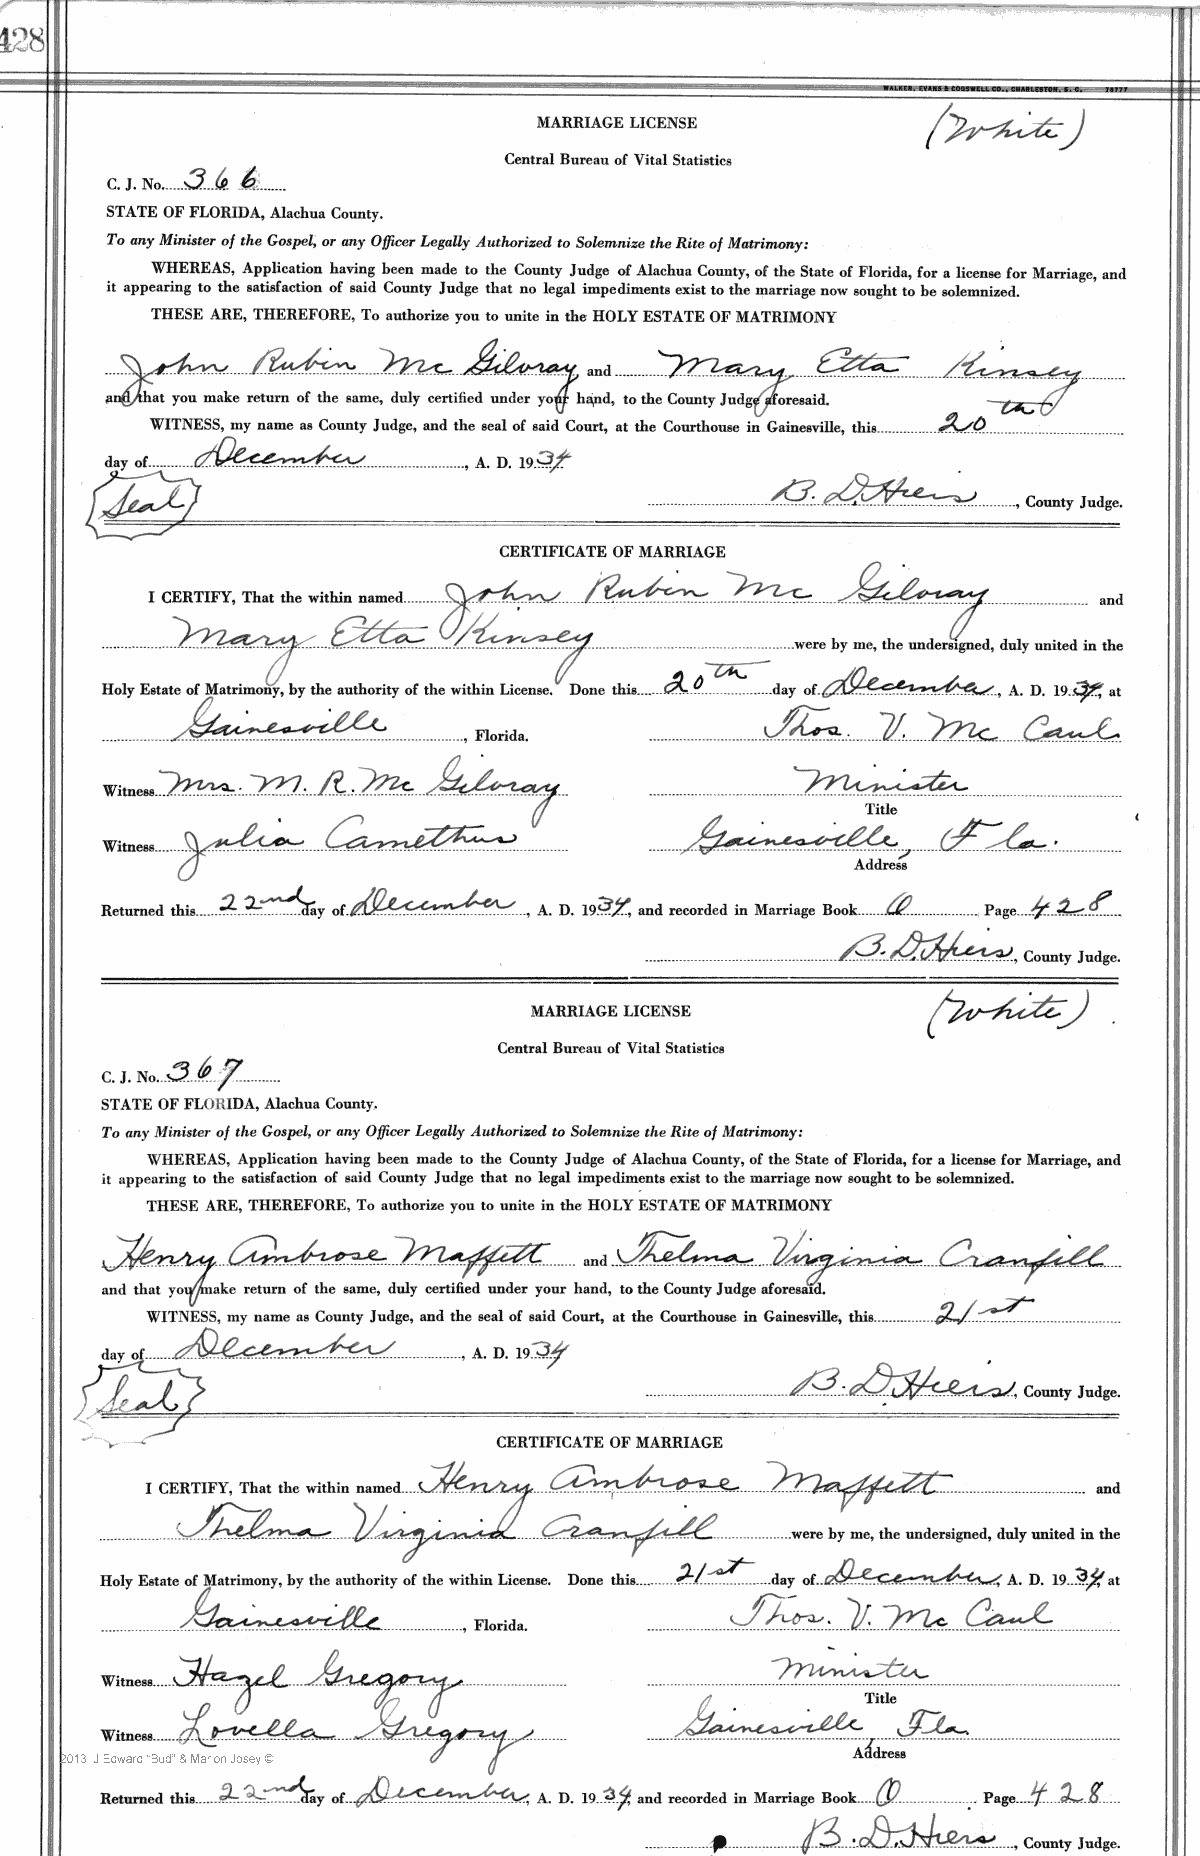 428
WALKER, EVANS & COGSWELL CO., CHARLESTON, S. C. 76777
MARRIAGE LICENSE
(White)
Central Bureau of Vital Statistics
C. J. No. 366
STATE OF FLORIDA, Alachua County.
To any Minister of the Gospel, or any Officer Legally Authorized to Solemnize the Rite of Matrimony:
WHEREAS, Application having been made to the County Judge of Alachua County, of the State of Florida, for a license for Marriage, and
it appearing to the satisfaction of said County Judge that no legal impediments exist to the marriage now sought to be solemnized.
THESE ARE, THEREFORE, To authorize you to unite in the HOLY ESTATE OF MATRIMONY
John Rubin Mc Gilvray and Mary Etta Kinsey
and that you make return of the same, duly certified under your hand, to the County Judge aforesaid.
WITNESS, my name as County Judge, and the seal of said Court, at the Courthouse in Gainesville, this 20th
day of December, A. D. 1934
Seal
B. D. Hiers, County Judge.
CERTIFICATE OF MARRIAGE
I CERTIFY, That the within named John Rubin Mc Gilvray and
Mary Etta Kinsey were by me, the undersigned, duly united in the
Holy Estate of Matrimony, by the authority of the within License. Done this 20th day of December, A. D. 1934, at
Gainesville, Florida. Thos. V. Mc Caul
Witness Mrs. M. R. Mc Gilvray Minister
Title
Witness Julia Gainesville, Fla.
Address
Returned this 22nd day of December, A. D. 1934, and recorded in Marriage Book O Page 428
B. D. Hiers, County Judge.
MARRIAGE LICENSE
(White)
Central Bureau of Vital Statistics
C. J. No. 367
STATE OF FLORIDA, Alachua County.
To any Minister of the Gospel, or any Officer Legally Authorized to Solemnize the Rite of Matrimony:
WHEREAS, Application having been made to the County Judge of Alachua County, of the State of Florida, for a license for Marriage, and
it appearing to the satisfaction of said County Judge that no legal impediments exist to the marriage now sought to be solemnized.
THESE ARE, THEREFORE, To authorize you to unite in the HOLY ESTATE OF MATRIMONY
Henry Ambrose Maffett and Thelma Virginia Cranfill
and that you make return of the same, duly certified under your hand, to the County Judge aforesaid.
WITNESS, my name as County Judge, and the seal of said Court, at the Courthouse in Gainesville, this 21st
day of December, A. D. 1934
Seal
B. D. Hiers, County Judge.
CERTIFICATE OF MARRIAGE
I CERTIFY, That the within named Henry Ambrose Maffett and
Thelma Virginia Cranfill were by me, the undersigned, duly united in the
Holy Estate of Matrimony, by the authority of the within License. Done this 21st day of December, A. D. 1934, at
Gainesville, Florida. Thos. V. Mc Caul
Witness Hazel Gregory Minister
Title
Witness Lovella Gregory Gainesville, Fla.
2013 J Edward "Bud" & Marion Josey ©
Address
Returned this 22nd day of December, A. D. 1934, and recorded in Marriage Book O Page 428
B. D. Hiers, County Judge.